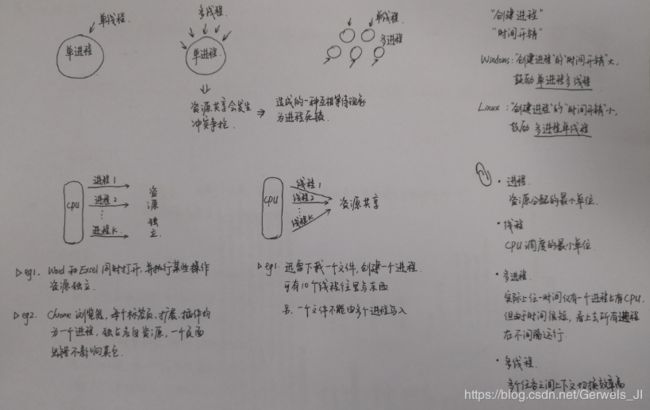 单线程
单进程
多线程
单进程
单线程
多进程
资源共享会发生
冲突争抢
造成的一种互相等待现象
为进程死锁
"创建进程"
"时间开销"
Windows:"创建进程"的"时间开销"大,
鼓励 单进程多线程
Linux:"创建进程"的"时间开销"小,
鼓励 多进程单线程
CPU
进程1
进程2
进程K
资源独立
CPU
线程1
线程2
线程K
资源共享
eg1. Word和Excel同时打开,并执行某些操作
资源独立.
eg2. Chrome浏览器,每个标签页、扩展、插件均
为一个进程,独占各自资源,一个页面
出错不影响其它.
eg1 迅雷下载一个文件,创建一个进程.
可有10个线程往里写东西
一个文件不能由多个进程写入
· 进程
资源分配的最小单位.
· 线程
CPU调度的最小单位
· 多进程
实际上任一时间仅有一个进程占有CPU.
但由于时间很短,看上去所有进程
在不间隔运行
· 多线程
多个任务之间上下文切换效率高
https://blog.csdn.net/Gerwels_JI